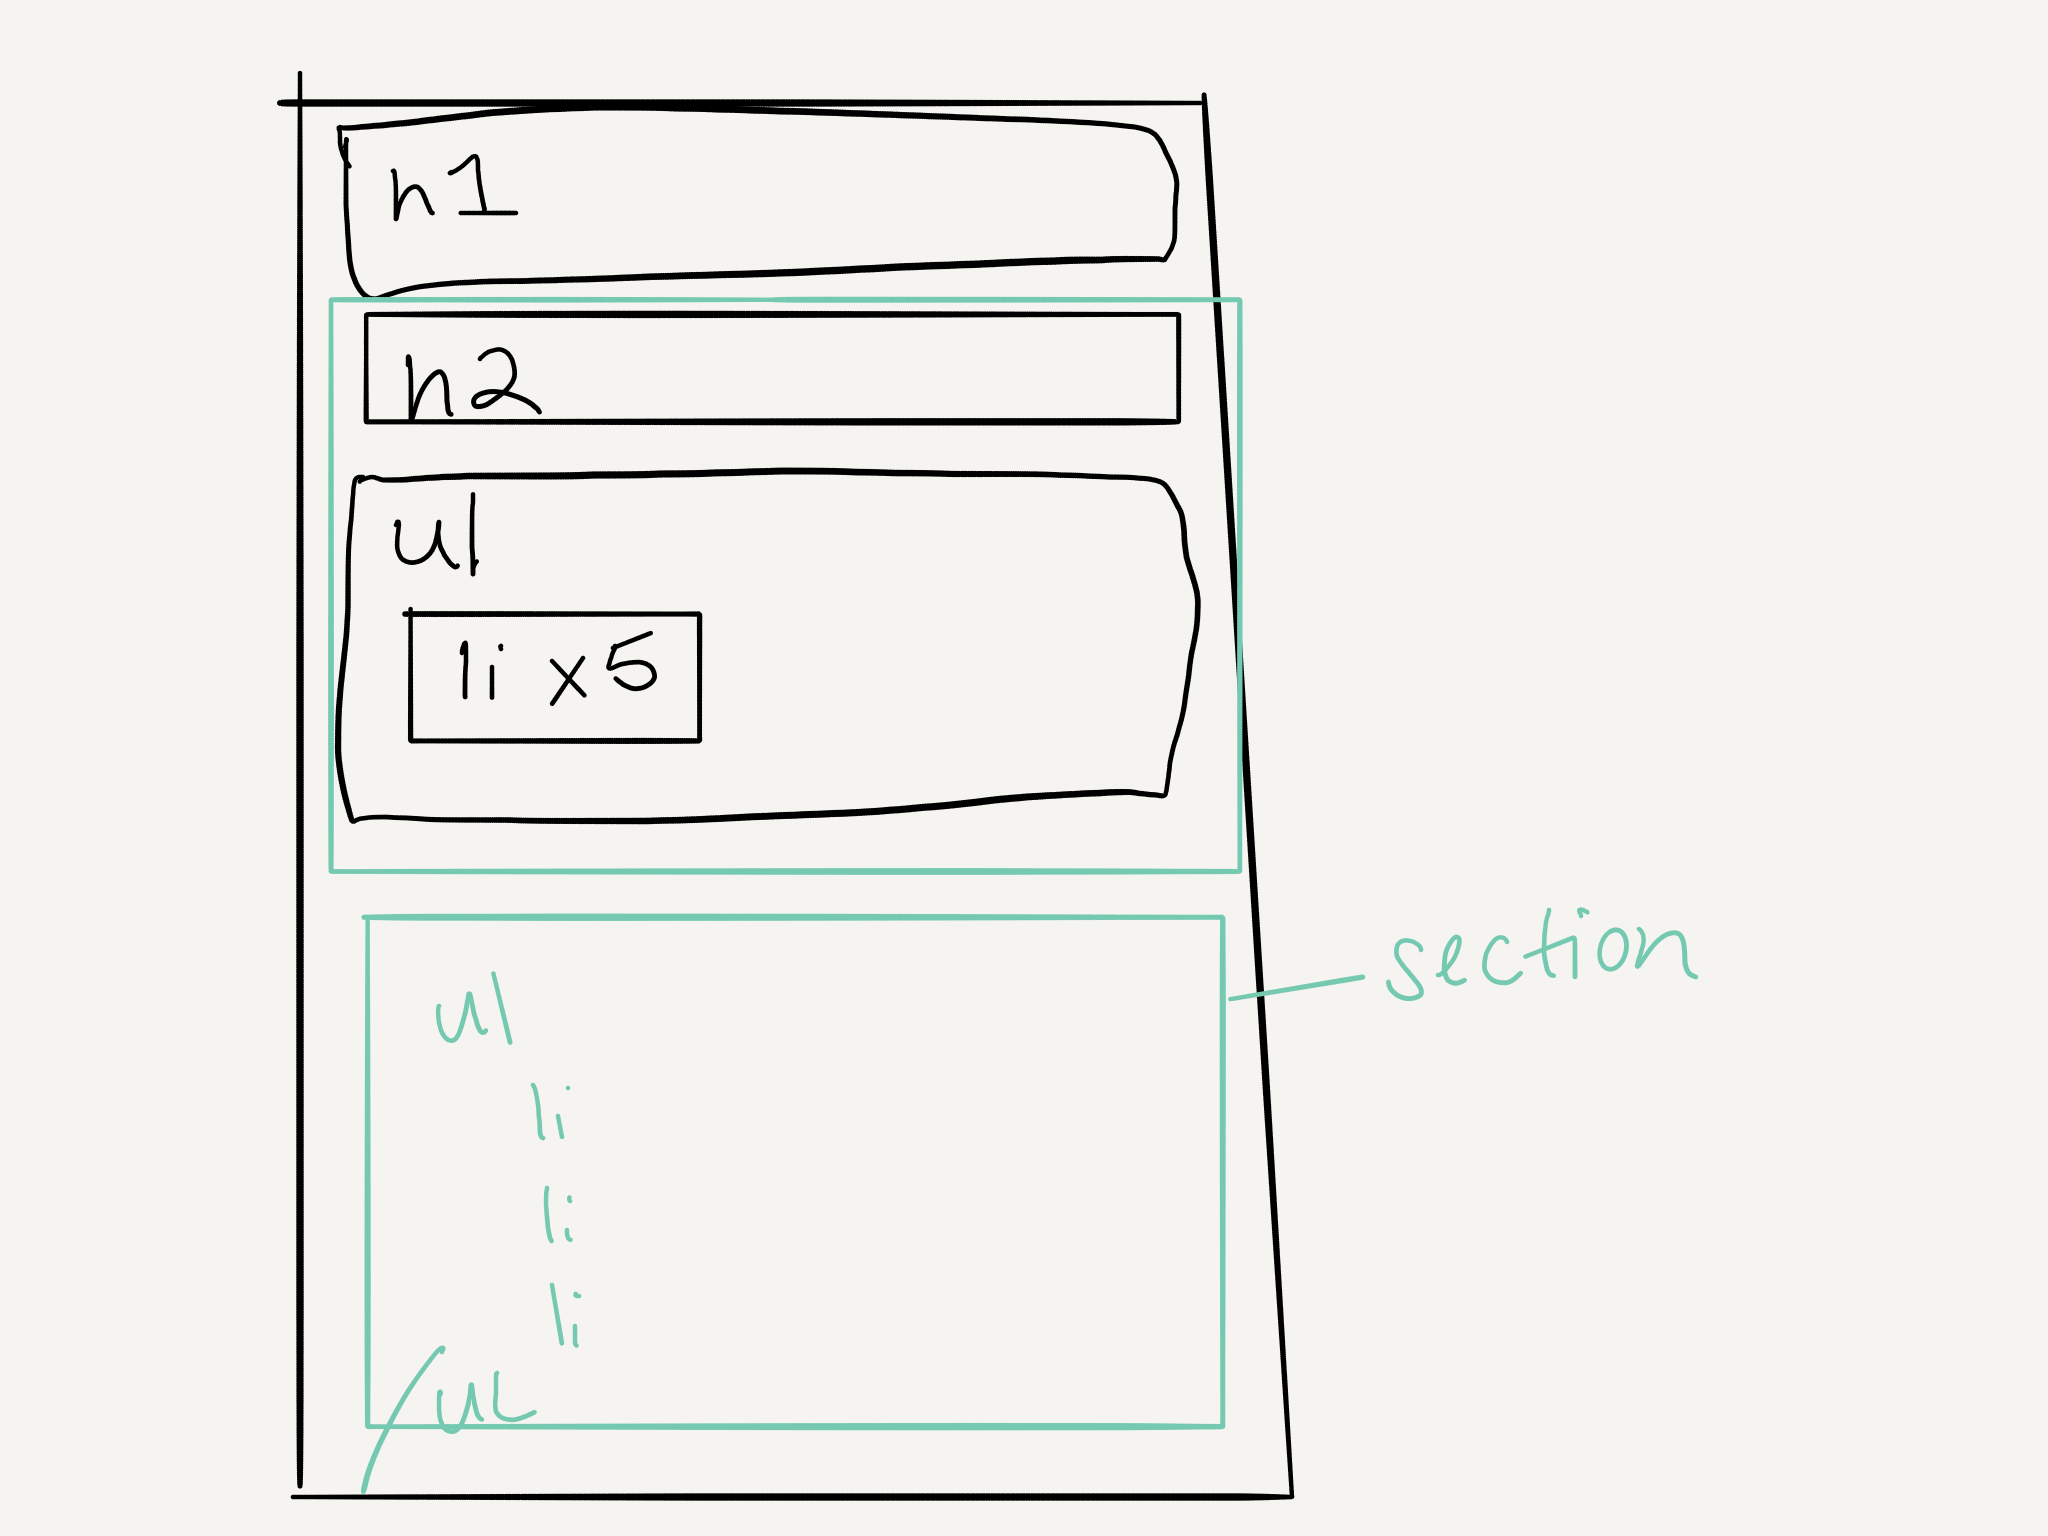 h1
h2
ul
li x5
section
ul
li
li
li
/ul